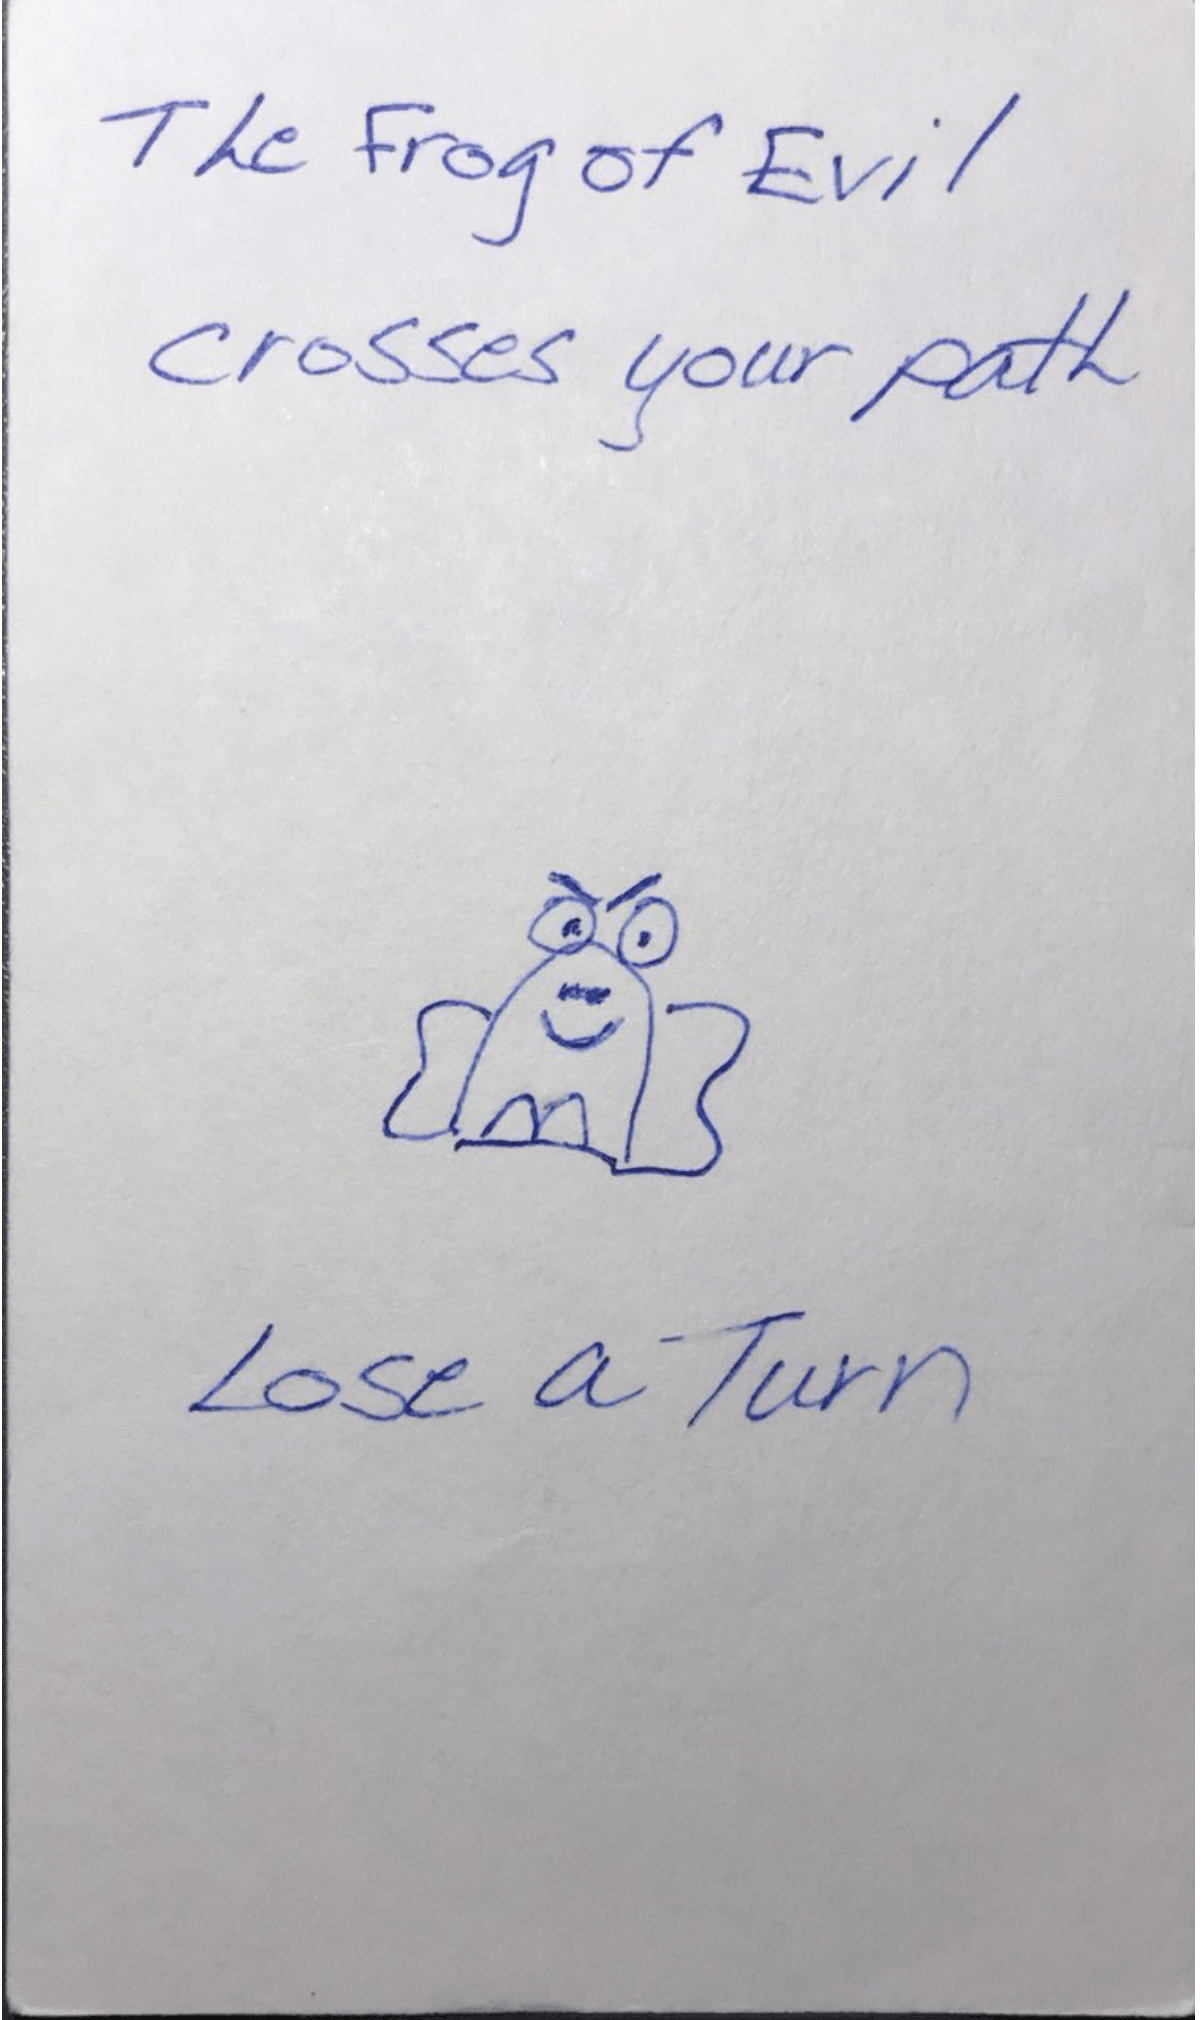 The Frog of Evil
crosses your path
Lose a Turn